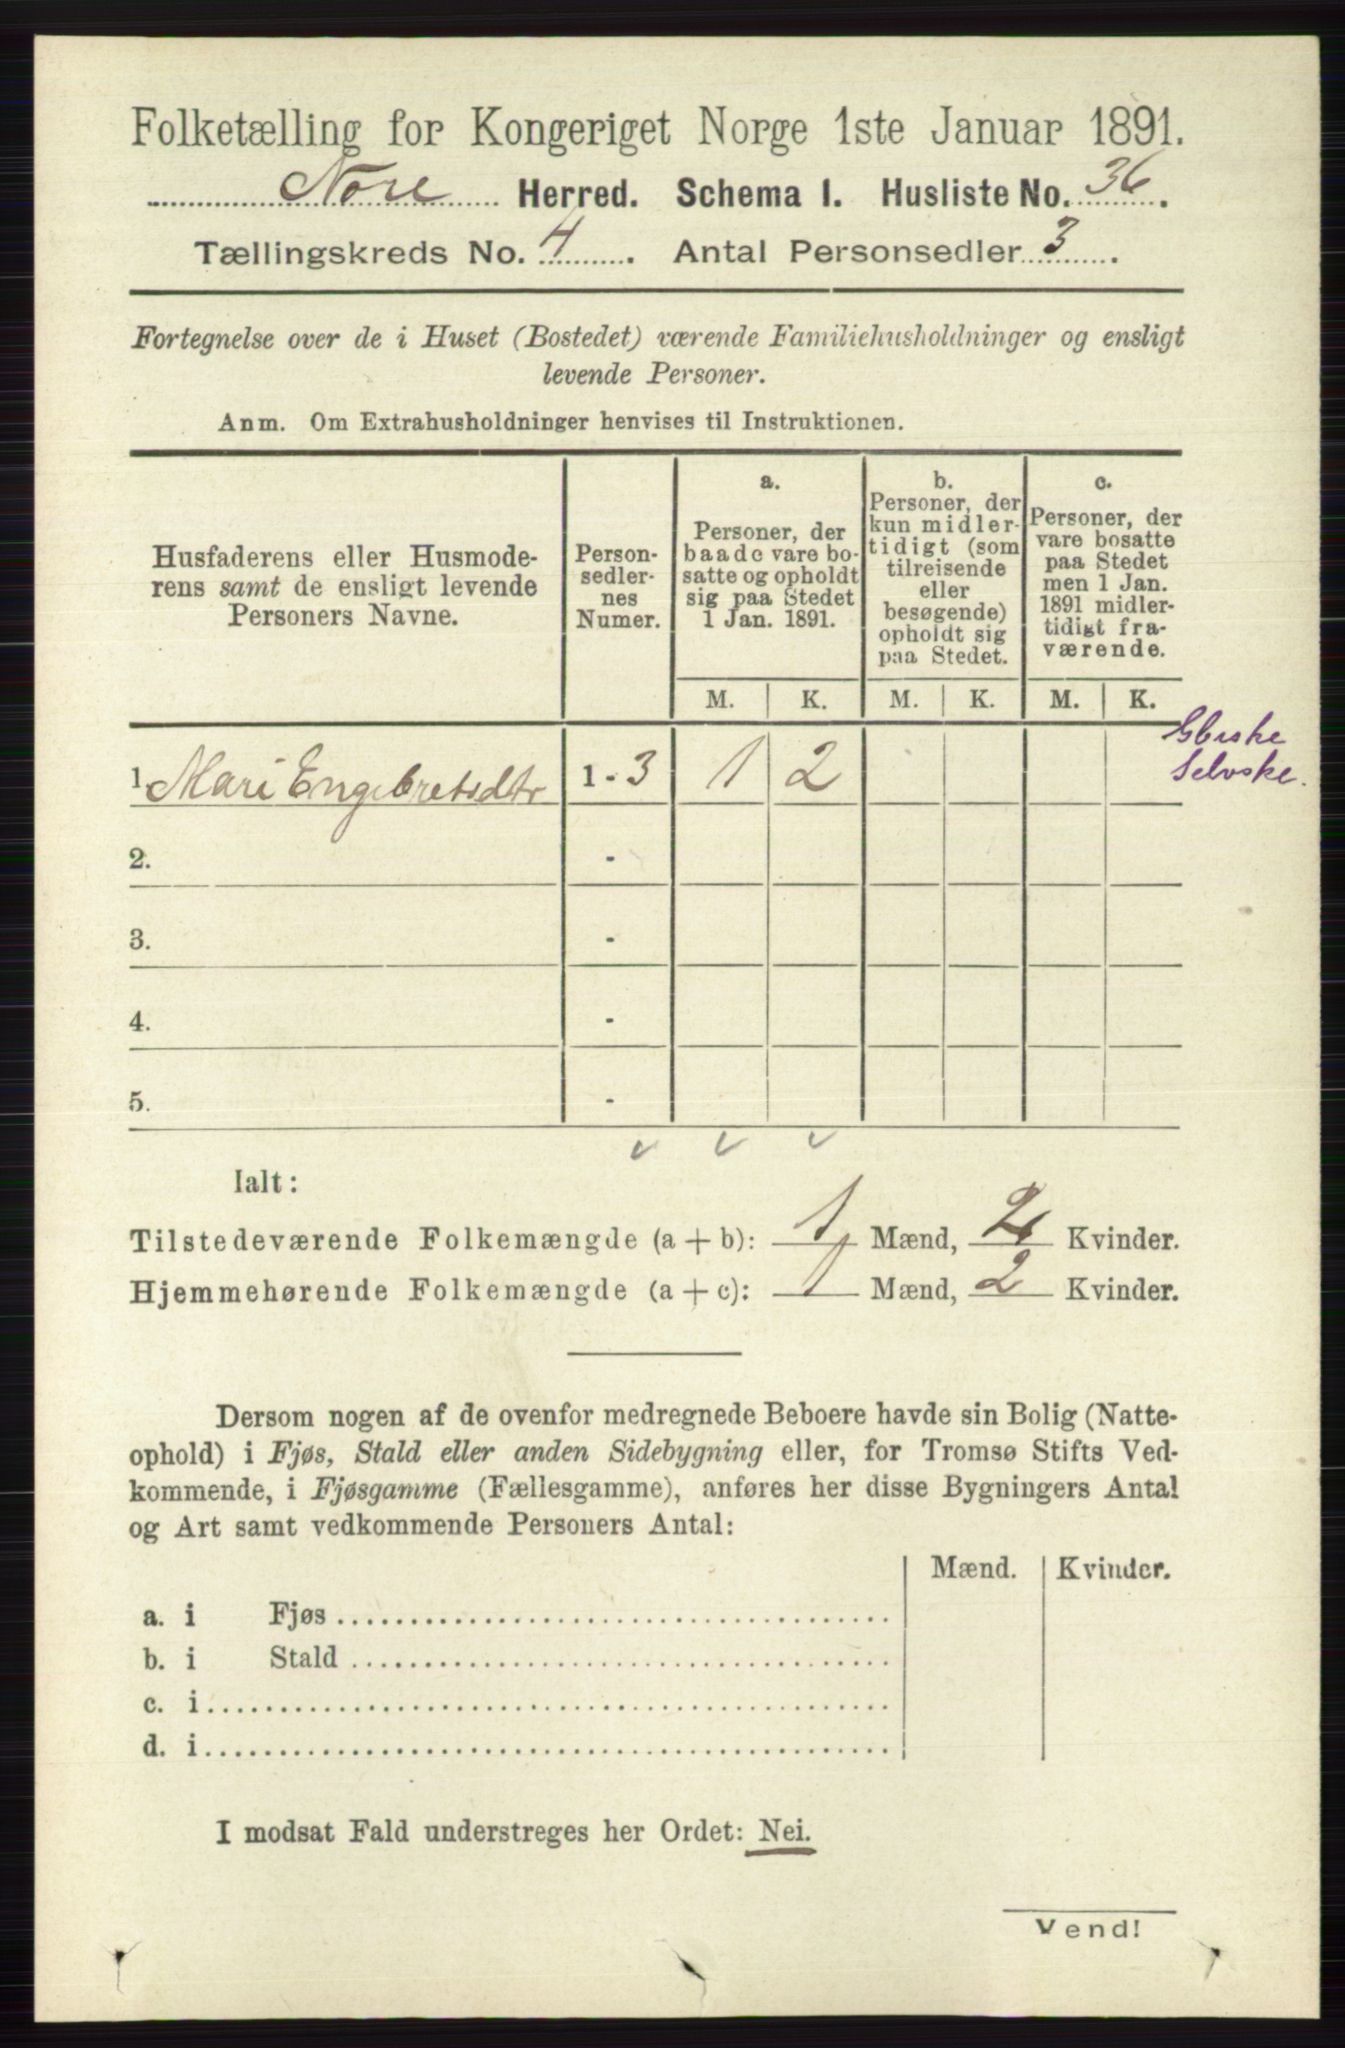 Folketælling for Kongeriget Norge 1ste Januar 1891.
Nore Herred. Schema I. Husliste No. 36.
Tællingskreds No. 4. Antal Personsedler 3.
Fortegnelse over de i Huset (Bostedet) værende Familiehusholdninger og ensligt
levende Personer.
Anm. Om Extrahusholdninger henvises til Instruktionen.
Husfaderens eller Husmode-
rens samt de ensligt levende
Personers Navne.
Person-
sedler-
nes
Numer.
a.
Personer, der
baade vare bo-
satte og opholdt
sig paa Stedet
1 Jan. 1891.
b.
Personer, der
kun midler-
tidigt (som
tilreisende
eller
besøgende)
opholdt sig
paa Stedet.
c.
Personer, der
vare bosatte
paa Stedet
men 1 Jan.
1891 midler-
tidigt fra-
værende.
M. K. M. K. M. K.
1. Mari Engebretsdtr 1 - 3 1 2
2. -
3. -
4. -
5. -
Ialt:
Tilstedeværende Folkemængde (a + b): 1 Mænd, 2 Kvinder.
Hjemmehørende Folkemængde (a + c): 1 Mænd, 2 Kvinder.
Dersom nogen af de ovenfor medregnede Beboere havde sin Bolig (Natte-
ophold) i Fjøs, Stald eller anden Sidebygning eller, for Tromsø Stifts Ved-
kommende, i Fjøsgamme (Fællesgamme), anføres her disse Bygningers Antal
og Art samt vedkommende Personers Antal:
Mænd. Kvinder.
a. i Fjøs
b. i Stald
c. i
d. i
I modsat Fald understreges her Ordet: Nei.
Vend!